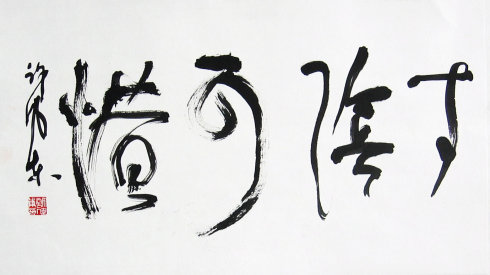 寸陰可惜